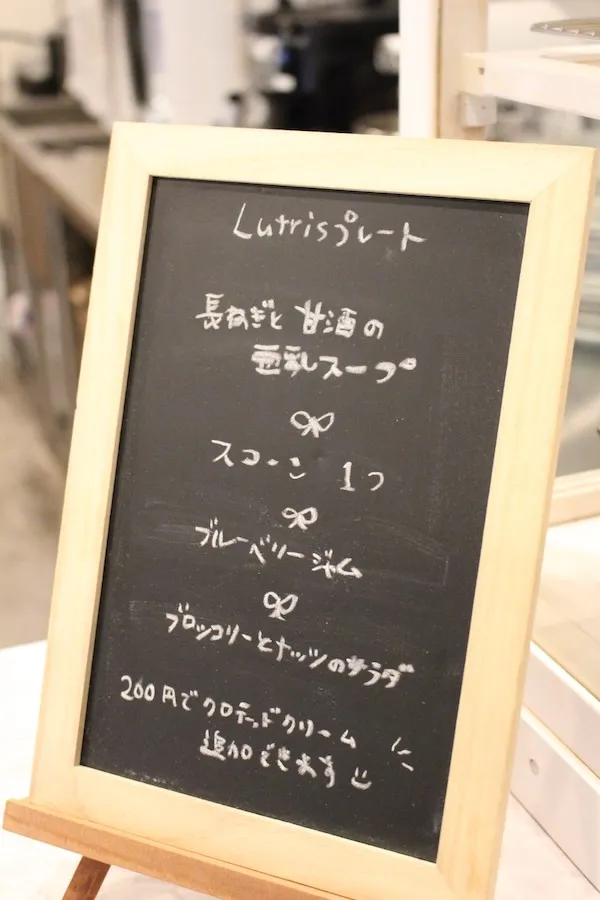 Lutrisプレート
長ねぎと甘酒の
豆乳スープ
スコーン 1つ
ブルーベリージャム
ブロッコリーとナッツのサラダ
200円でクロテッドクリーム
追加できます